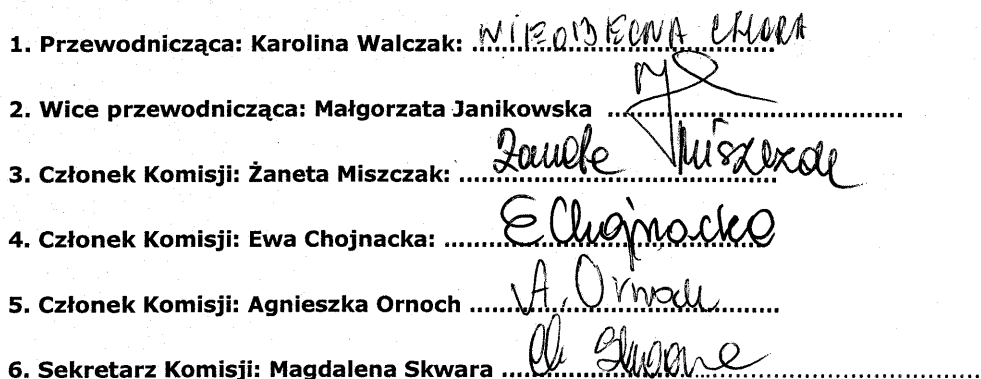 1. Przewodnicząca: Karolina Walczak: NIEOBECNA CHORA
2. Wice przewodnicząca: Małgorzata Janikowska ....................................
3. Członek Komisji: Żaneta Miszczak: Żaneta Miszczak
4. Członek Komisji: Ewa Chojnacka: EChojnacka
5. Członek Komisji: Agnieszka Ornoch A. Ornoch
6. Sekretarz Komisji: Magdalena Skwara M Skwara